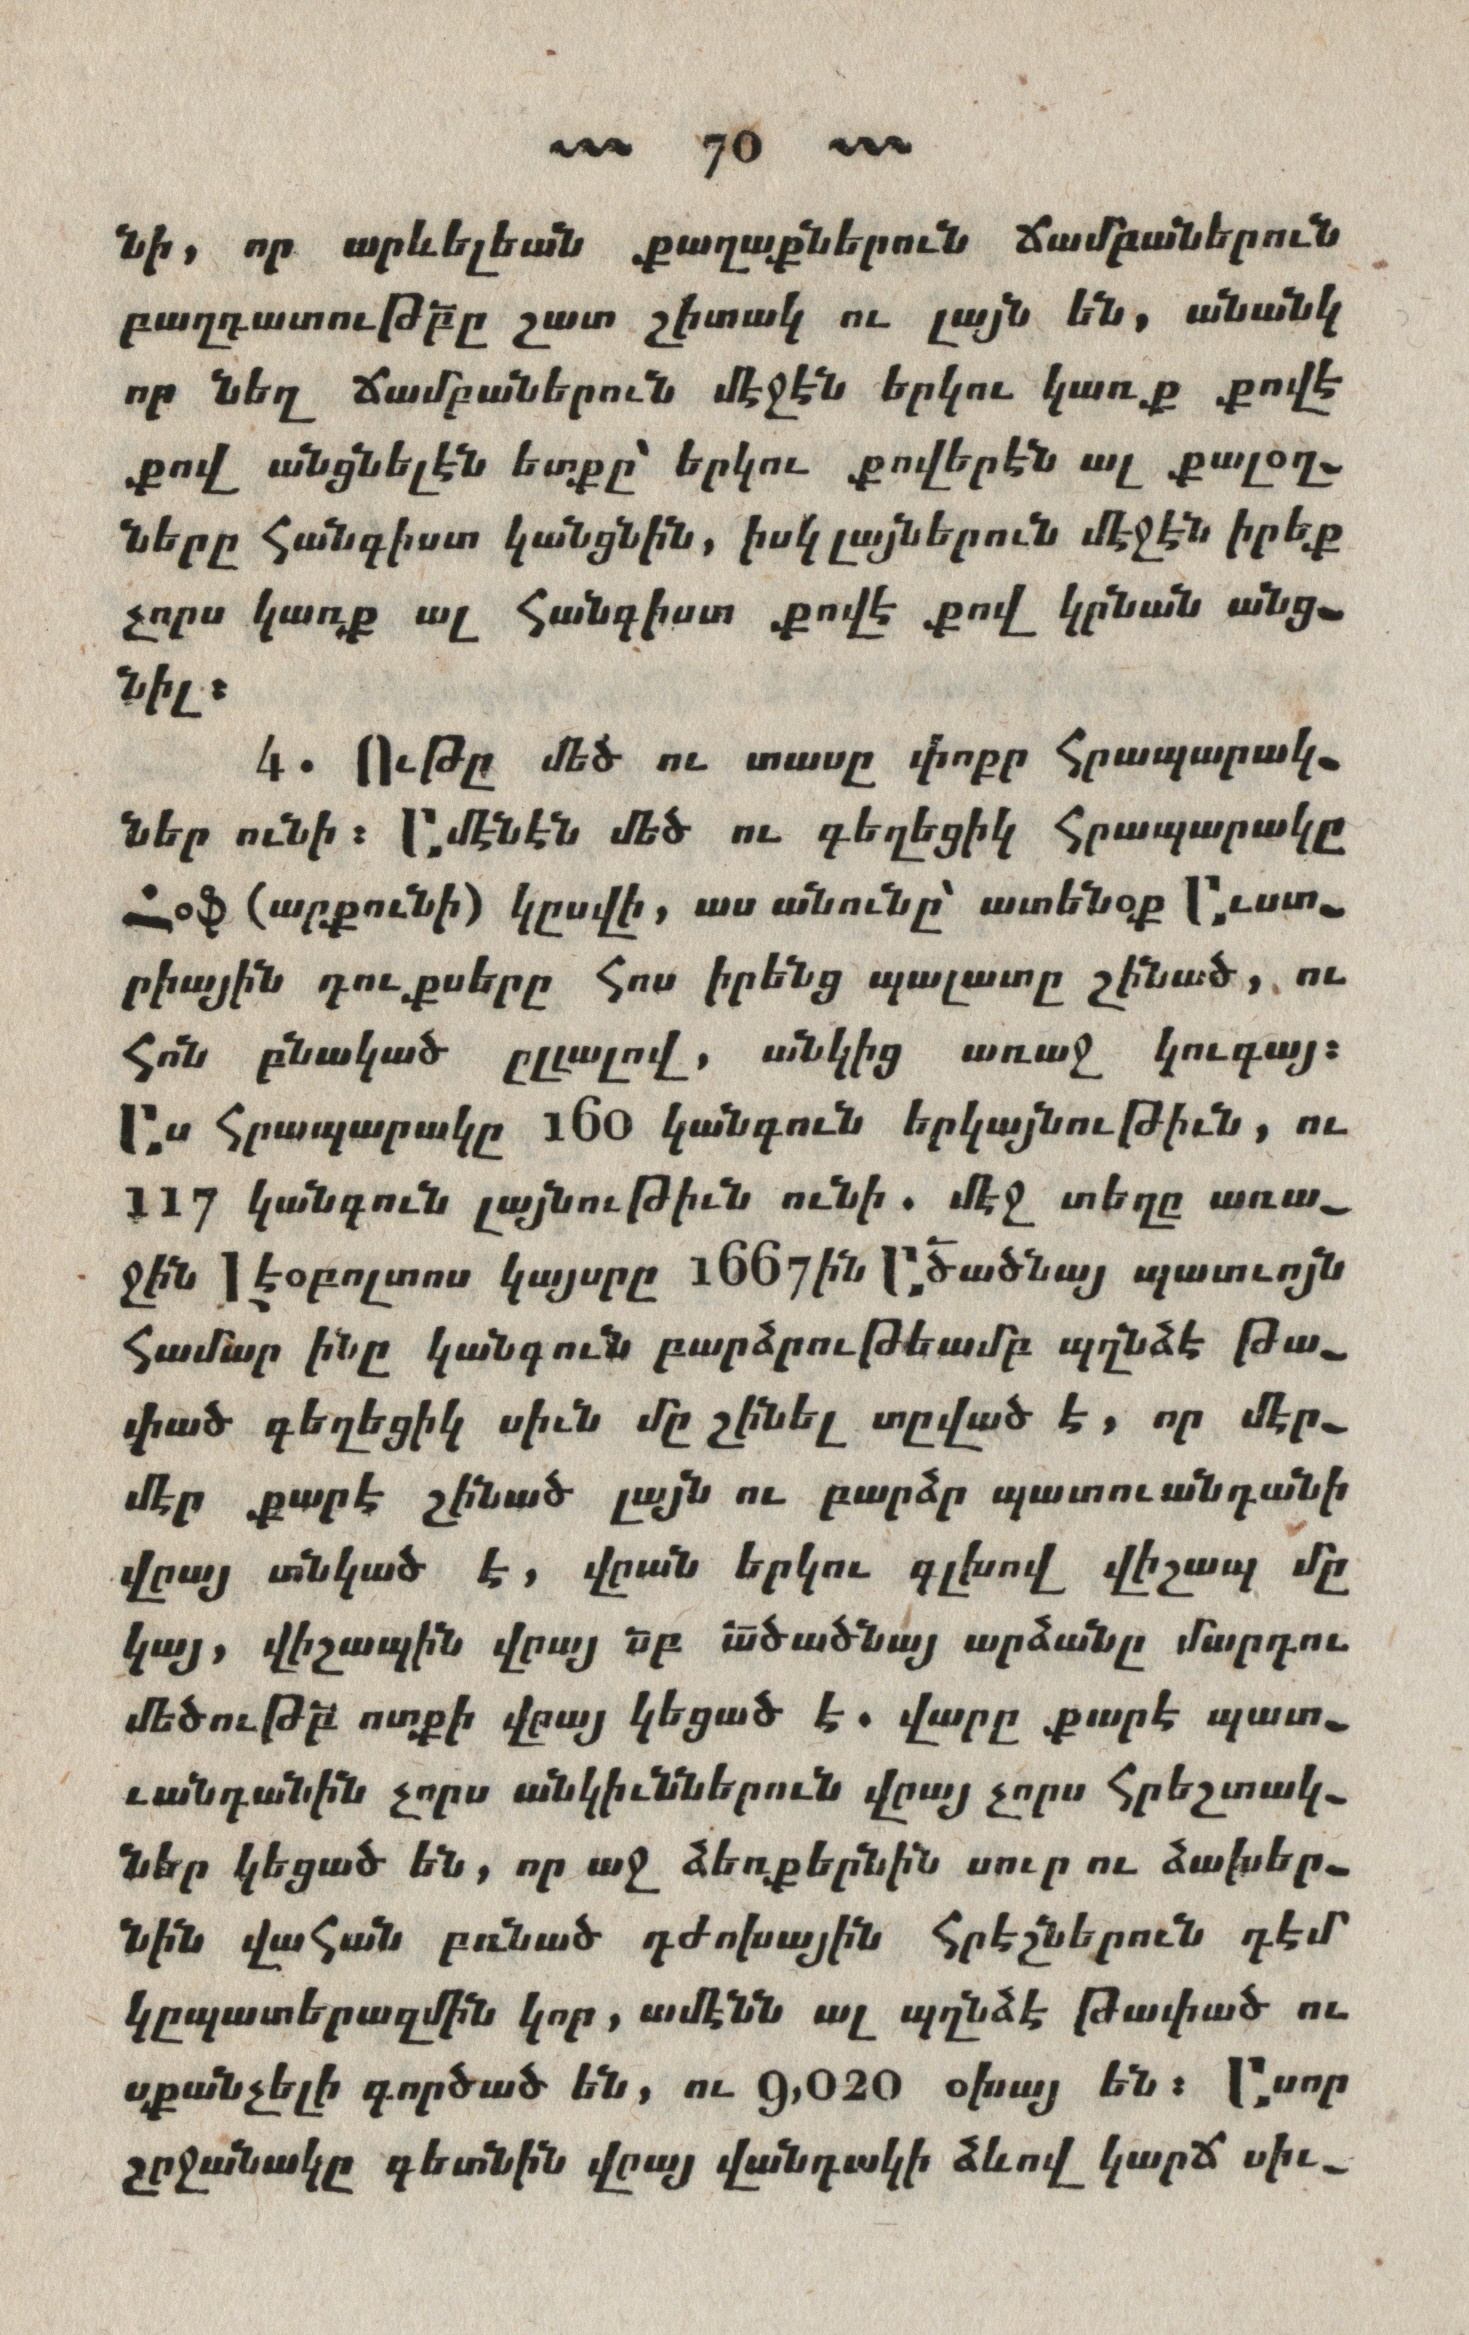 70
նի, որ արևելեան քաղաքներուն ճամբաներուն
բաղդատութբ̃ը շատ շիտակ ու լայն են, անանկ
որ նեղ ճամբաներուն մէջէն երկու կառք քովէ
քով անցնելէն ետքը՝ երկու քովերէն ալ քալօղ-
ները հանգիստ կանցնին, իսկ լայներուն մէջէն իրեք
չորս կառք ալ հանգիստ քովէ քով կրնան անց-
նիլ։
4. Ութը մեծ ու տասը փոքր հրապարակ-
ներ ունի։ Ամէնէն մեծ ու գեղեցիկ հրապարակը
Հօֆ (արքունի) կըսվի, աս անունը՝ ատենօք Աւստ-
րիային դուքսերը հոս իրենց պալատը շինած, ու
հոն բնակած ըլլալով, անկից առաջ կուգայ։
Աս հրապարակը 160 կանգուն երկայնութիւն, ու
117 կանգուն լայնութիւն ունի. մէջ տեղը առա-
ջին Լէօբոլտոս կայսրը 1667ին Ա̃ծածնայ պատւոյն
համար ինը կանգուն բարձրութեամբ պղնձէ թա-
փած գեղեցիկ սիւն մը շինել տըված է, որ մէր-
մէր քարէ շինած լայն ու բարձր պատուանդանի
վըայ տնկած է, վըան երկու գլխով վիշապ մը
կայ, վիշապին վըայ ս̃բ ա̃ծածնայ արձանը մարդու
մեծութբ̃ ոտքի վըայ կեցած է. վարը քարէ պատ-
ւանդանին չորս անկիւններուն վըայ չորս հրեշտակ-
ներ կեցած են, որ աջ ձեռքերնին սուր ու ձախեր-
նին վահան բռնած դժոխային հրէշներուն դէմ
կըպատերազմին կոր, ամէնն ալ պղնձէ թափած ու
սքանչելի գործած են, ու 9,020 օխայ են։ Ասոր
շըջանակը գետնին վըայ վանդակի ձևով կարճ սիւ-